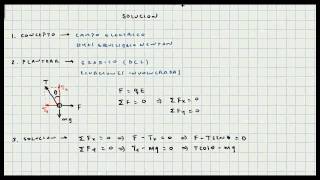 SOLUCION
1. CONCEPTO → CAMPO ELECTRICO
EQUILIBRIO NEWTON
2. PLANTEAR → GRAFICO (DCL)
ECUACIONES INVOLUCRADAS
T θ F
mg
F = qE
ΣF = 0 ⇒ ΣFx = 0
ΣFy = 0
3. SOLUCION → ΣFx = 0 ⇒ F - Tx = 0 ⇒ F - T sen θ = 0
ΣFy = 0 ⇒ Ty - mg = 0 ⇒ T cos θ = mg